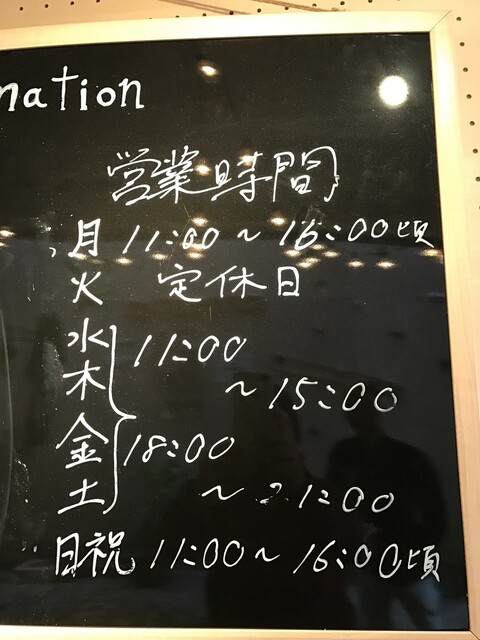 mation
営業時間
月 11:00 ~ 16:00頃
火 定休日
水
木
金
土
11:00
~ 15:00
18:00
~ 21:00
日祝 11:00 ~ 16:00頃